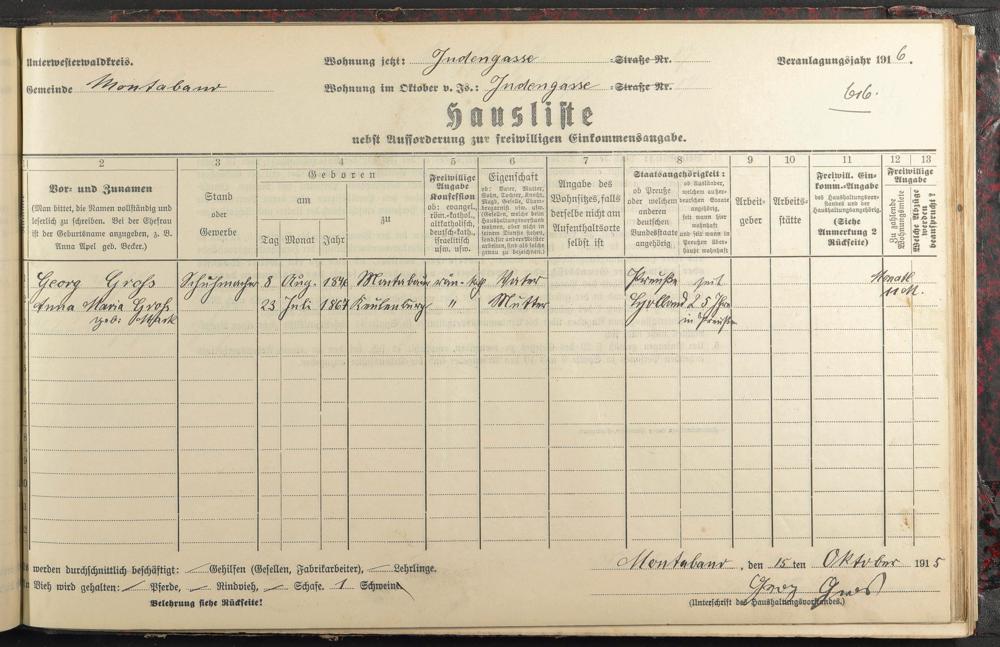 Unterwesterwaldkreis.
Wohnung jetzt: Judengasse Straße Nr.
Veranlagungsjahr 1916.
Gemeinde Montabaur
Wohnung im Oktober v. Js.: Judengasse Straße Nr.
616.
Hausliste
nebst Aufforderung zur freiwilligen Einkommensangabe.
2 3 4 5 6 7 8 9 10 11 12 13
Vor- und Zunamen
(Man bittet, die Namen vollständig und
leserlich zu schreiben. Bei der Ehefrau
ist der Geburtsname anzugeben, z. B.
Anna Apel geb. Becker.)
Stand
oder
Gewerbe
Geboren
am
zu
Tag Monat Jahr
Freiwillige
Angabe
Konfession
ob: evangel.,
röm.-kathol.,
altkatholisch,
deutsch-kath.,
israelitisch
usw. usw.
Eigenschaft
ob: Vater, Mutter,
Sohn, Tochter, Knecht,
Magd, Geselle, Cham-
bregarnist usw. usw.
(Gesellen, welche beim
Haushaltungsvorstand
wohnen, aber nicht in
seinem Dienste stehen,
sond. für andere Meister
arbeiten, sind als solche
genau zu bezeichnen.)
Angabe des
Wohnsitzes, falls
derselbe nicht am
Aufenthaltsorte
selbst ist
Staatsangehörigkeit:
ob Preuße
oder welchem
anderen
deutschen
Bundesstaate
angehörig.
ob Ausländer,
welchem außer-
deutschen Staate
angehörig,
seit wann hier
wohnhaft
und seit wann in
Preußen über-
haupt wohnhaft
Arbeit-
geber
Arbeits-
stätte
Freiwill. Ein-
komm.-Angabe
des Haushaltungsvor-
standes und der
Haushaltungsangehörig.
(Siehe
Anmerkung 2
Rückseite)
Freiwillige
Angabe
Zu zahlende
Wohnungsmiete
Welche Abzüge
werden
beansprucht?
Georg Groß Schuhmacher 8 Aug. Montabaur röm.-kath. Vater Preuße seit Monatl.
Anna Maria Groß 23 Juli 1867 Keulenburg " Mutter Holland 25 Jhre 11 M.
geb. Mark in Preußen
werden durchschnittlich beschäftigt: Gehilfen (Gesellen, Fabrikarbeiter), Lehrlinge.
Montabaur, den 15ten Oktober 1915
Vieh wird gehalten: Pferde, Rindvieh, Schafe. 1 Schweine
Georg Groß
Belehrung siehe Rückseite!
(Unterschrift des Haushaltungsvorstandes.)